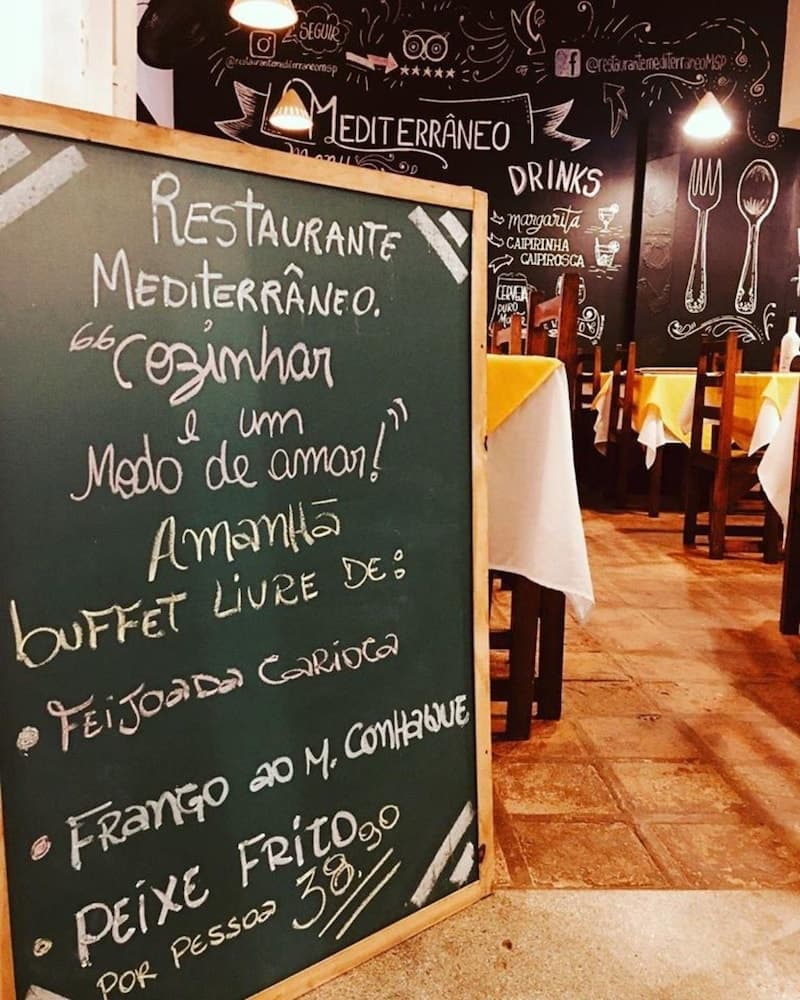 SEGUIR
@restaurantemediterraneomsp
@restaurantemediterraneoMSP
MEDITERRÂNEO
menu
DRINKS
margarita
CAIPIRINHA
CAIPIROSCA
CERVEJA
PURO
RESTAURANTE
MEDITERRÂNEO.
"Cozinhar
é um
Modo de amar!"
AMANHÃ
BUFFET LIVRE DE:
• FEIJOADA CARIOCA
• FRANGO AO M. CONHAQUE
• PEIXE FRITO
POR PESSOA 38,90